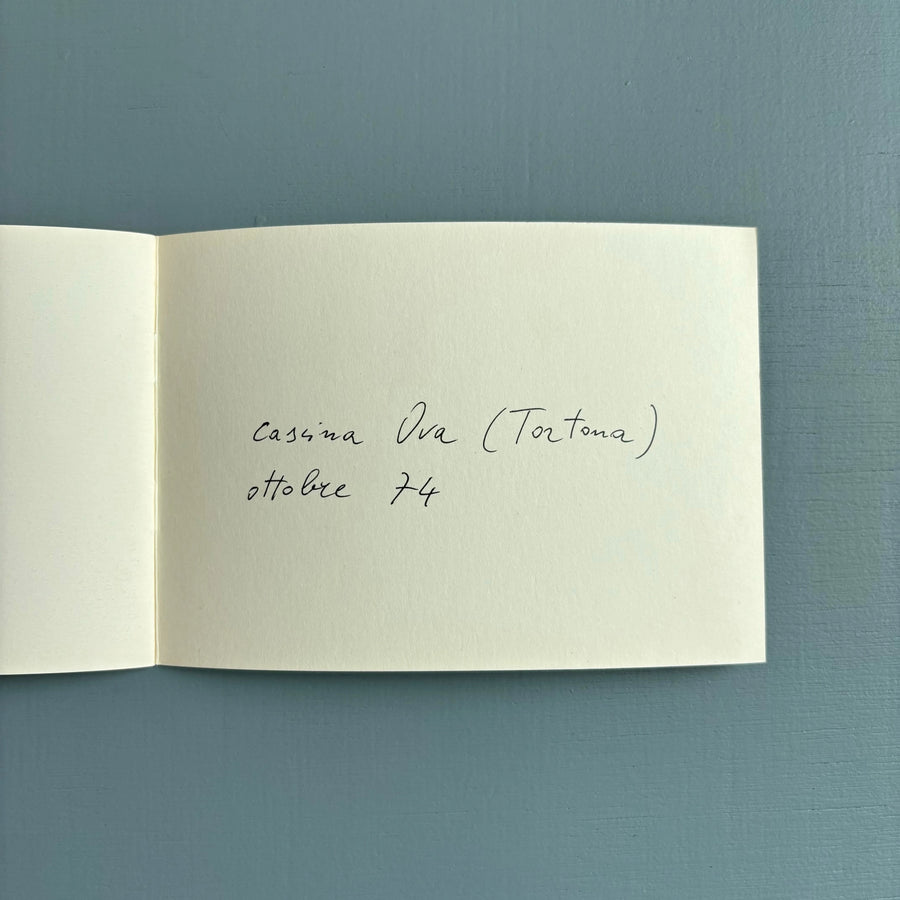 cascina Ova (Tortona)
ottobre 74